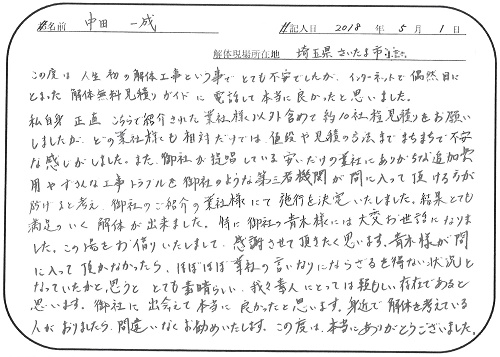 お名前 中田 一成 ご記入日 2018 年 5 月 1 日
解体現場所在地 埼玉県さいたま市
この度は人生初の解体工事という事でとても不安でしたが、インターネットで偶然目に
とまった解体無料見積りガイドに電話して本当に良かったと思いました。
私自身 正直 こちらで紹介された業社様以外含めて約10社程見積りをお願い
しましたが、どの業社様にも相対だけでは値段や見積の方法までまちまちで不安
な感じがしました。また、御社が提唱している安いだけの業社にありがちな追加費
用やずさんな工事トラブルを御社のような第三者機関が間に入って頂ける方が
防げると考え、御社のご紹介の業社様にて施行を決定いたしました。結果とても
満足のいく解体が出来ました。特に御社の青木様には大変お世話になりま
した。この場をお借りいたしまして、感謝させて頂きたく思います。青木様が間
に入って頂かなかったら、ほぼほぼ業社の言いなりにならざるを得ない状況と
なっていたかと思うと とても素晴らしい、我々素人にとっては頼もしい存在であると
思います。御社に出会えて本当に良かったと思います。身近で解体を考えている
人がおりましたら、間違いなくお勧めいたします。この度は、本当にありがとうございました。